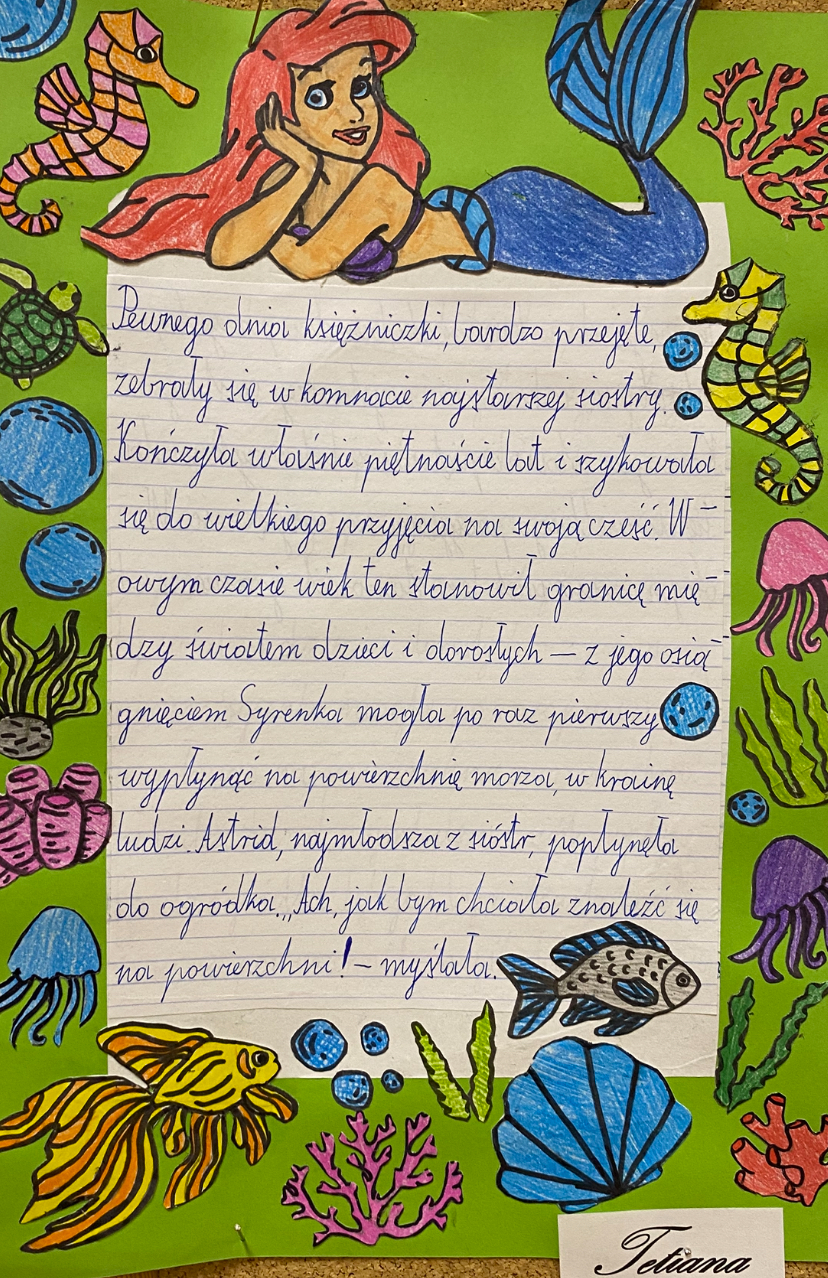 Pewnego dnia księżniczki, bardzo przejęte,
zebrały się w komnacie najstarszej siostry.
Kończyła właśnie piętnaście lat i szykowała
się do wielkiego przyjęcia na swoją cześć. W -
owym czasie wiek ten stanowił granicę mię-
dzy światem dzieci i dorosłych — z jego osią-
gnięciem Syrenka mogła po raz pierwszy
wypłynąć na powierzchnię morza, w krainę
ludzi. Astrid, najmłodsza z sióstr, popłynęła
do ogródka. „Ach, jak bym chciała znaleźć się
na powierzchni! – myślała.
Tetiana